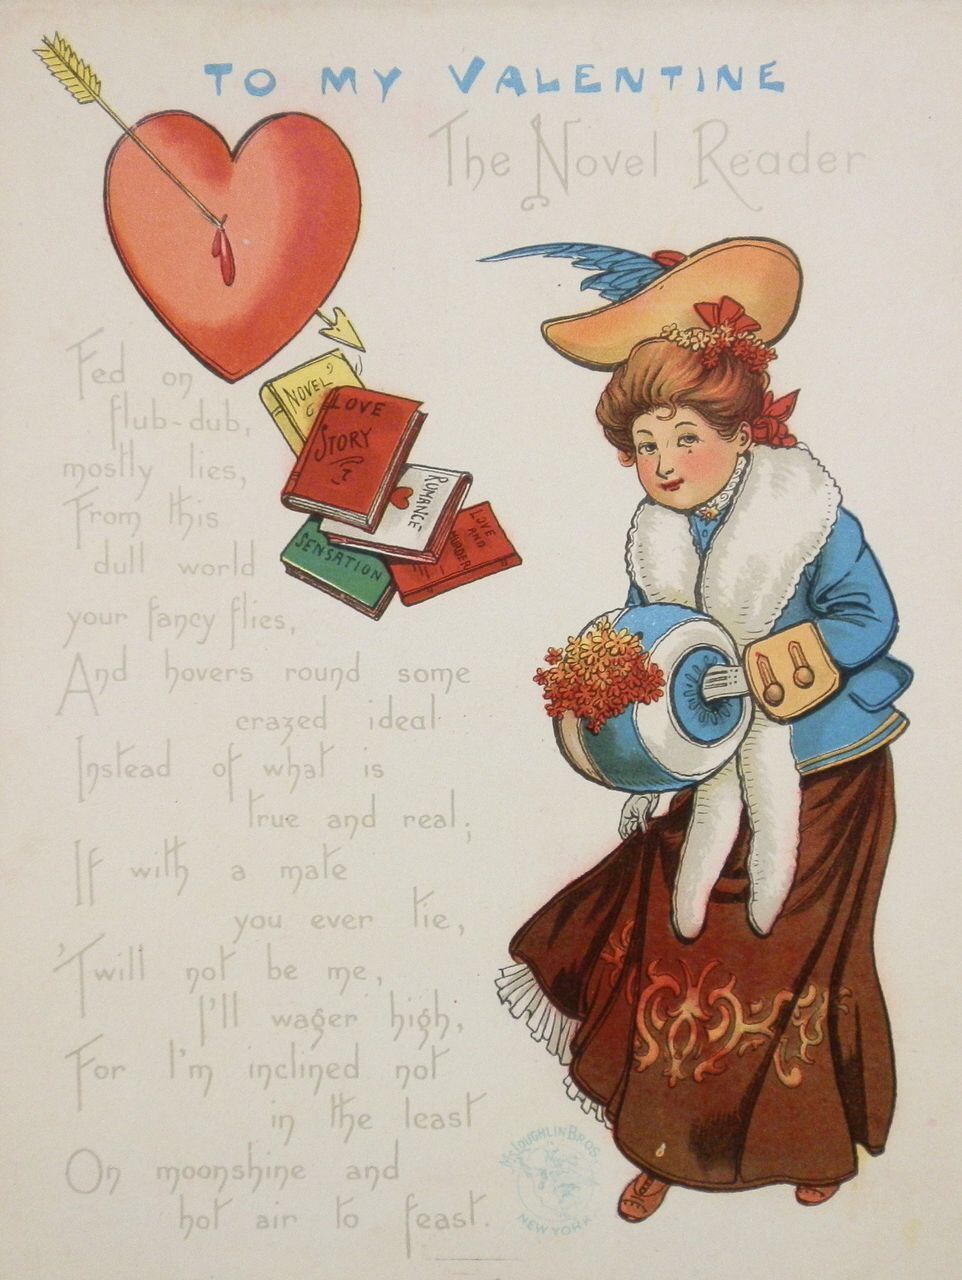 TO MY VALENTINE
The Novel Reader
NOVEL
LOVE
STORY
ROMANCE
LOVE
AND
MURDER
SENSATION
Fed on
flub-dub,
mostly lies,
From this
dull world
your fancy flies,
And hovers round some
crazed ideal
Instead of what is
true and real;
If with a mate
you ever tie,
'Twill not be me,
I'll wager high,
For I'm inclined not
in the least
On moonshine and
hot air to feast.
McLOUGHLIN BROS.
NEW YORK.